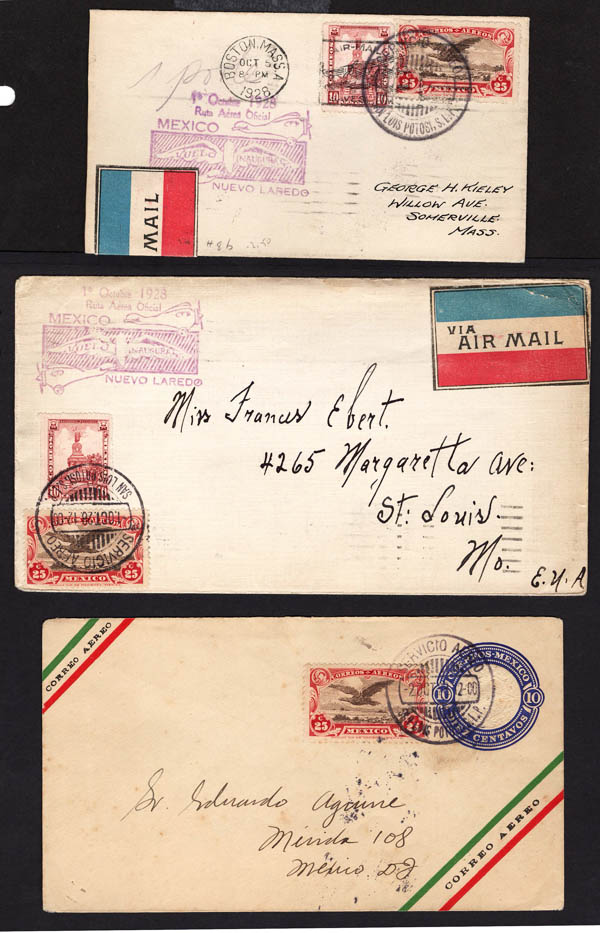 BOSTON, MASS. A
OCT 5
8 PM
1928
AIR-MAIL
CORREOS AEREOS
SERVICIO
10
10
25
25
MEXICO
LUIS POTOSI, S.L.P.
1º Octubre 1928
Ruta Aérea Oficial
MEXICO
VUELO INAUGURAL
NUEVO LAREDO
MAIL
GEORGE H. KIELEY
WILLOW AVE.
SOMERVILLE
MASS.
1º Octubre 1928
Ruta Aérea Oficial
MEXICO
INAUGURAL
NUEVO LAREDO
VIA
AIR MAIL
Miss Frances Ebert.
4265 Margaretta Ave:
St. Louis.
Mo.
E.U.A
SAN LUIS POTOSI, S.L.P.
1.OCT.28.12-00
SERVICIO AEREO
25
MEXICO
25
CORREO AEREO
SERVICIO AEREO
2-00
LUIS POTOSI S.L.P.
CORREOS-MEXICO
10
10
DIEZ CENTAVOS
25
MEXICO
Sr. Eduardo Aguirre
Mérida 108
México D.F.
CORREO AEREO